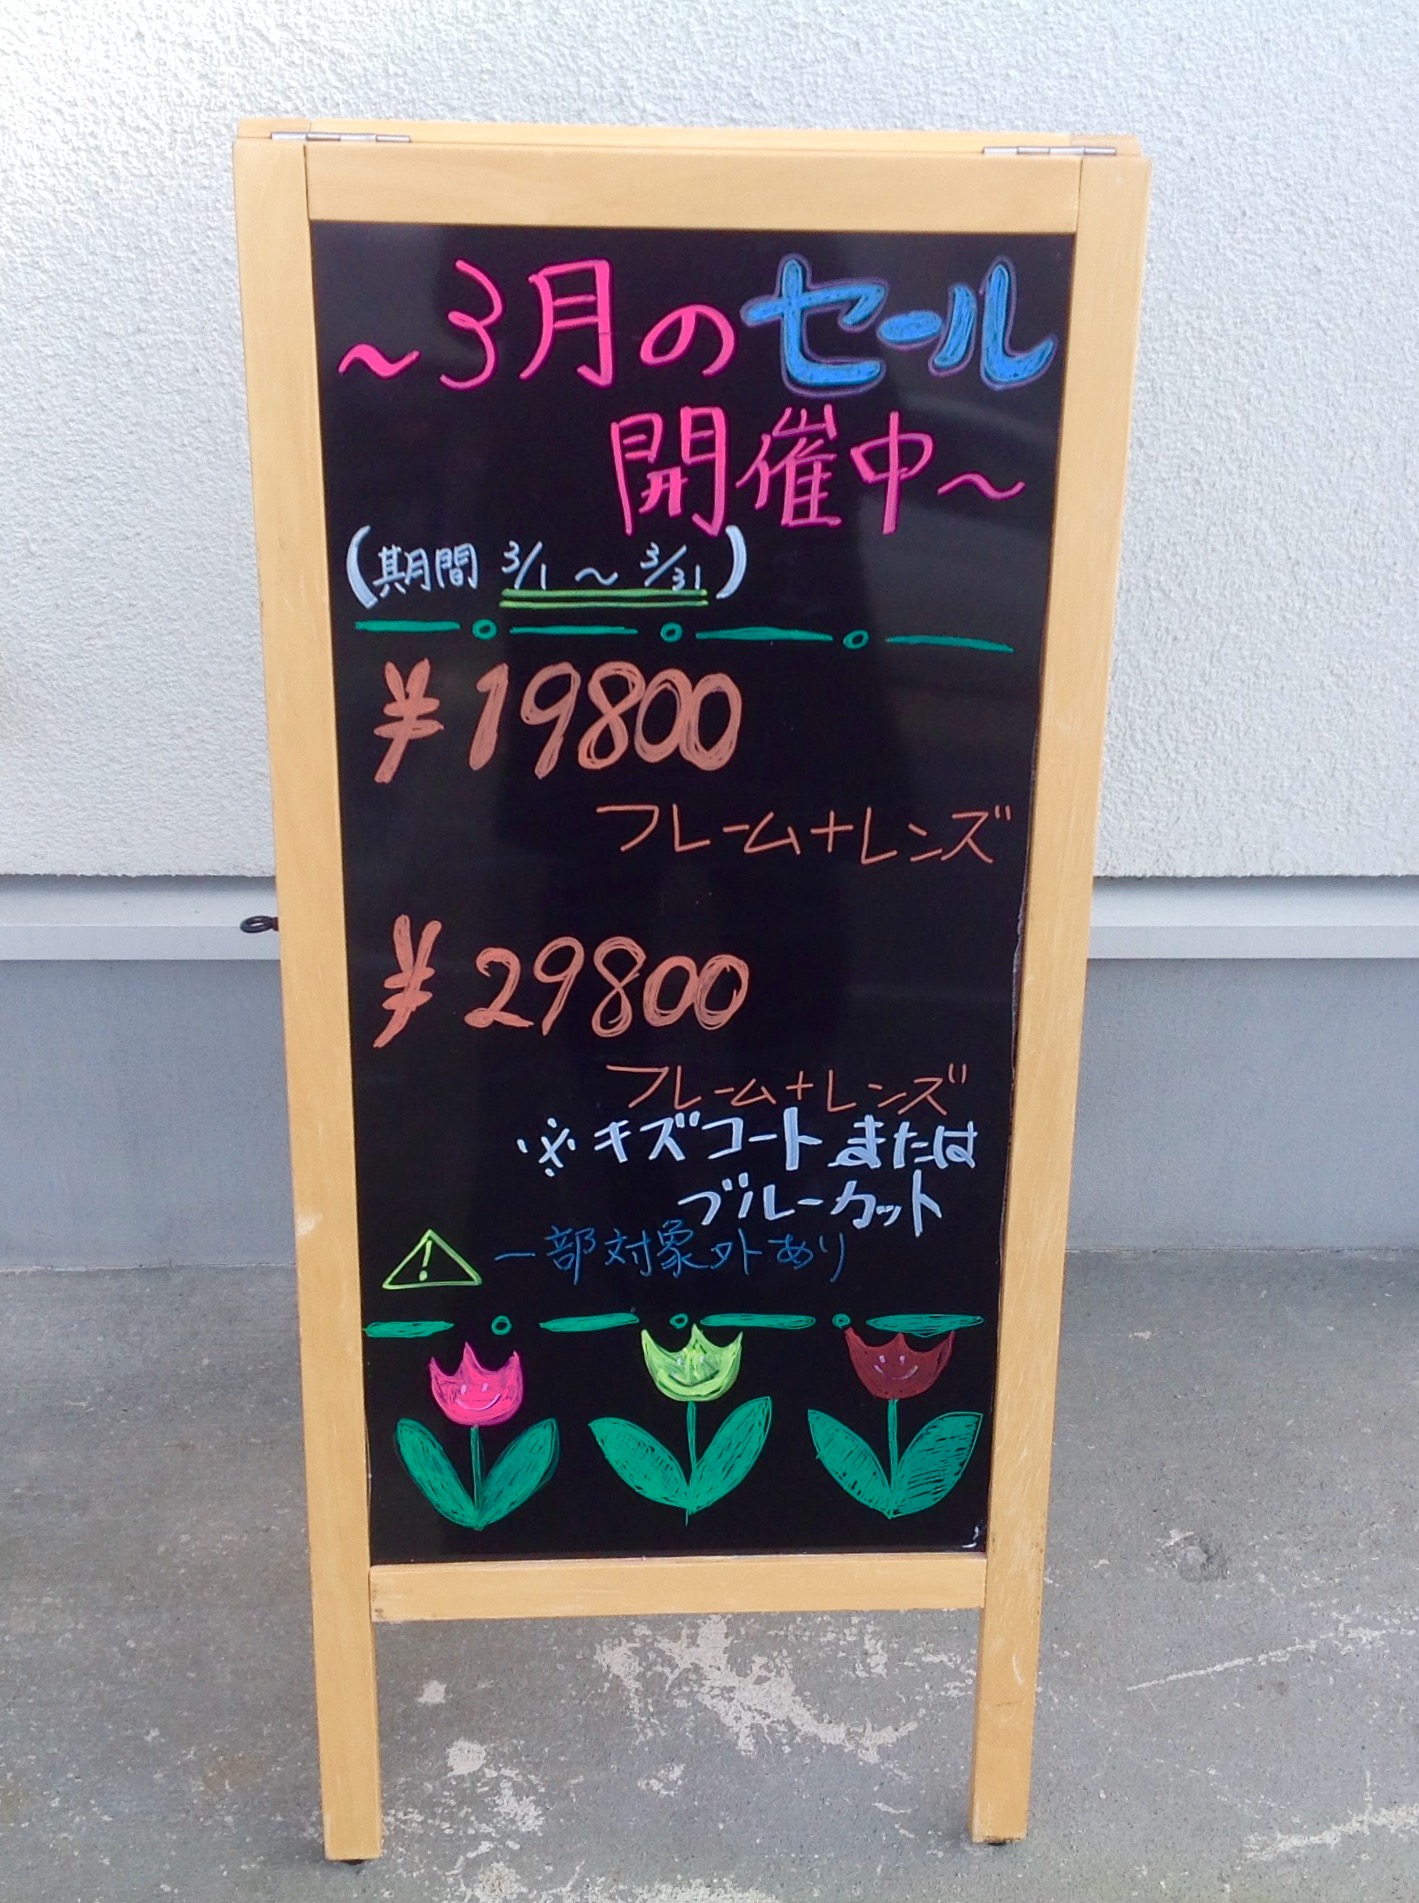 ～3月のセール
開催中～
(期間 3/1～3/31)
¥19800
フレーム+レンズ
¥29800
フレーム+レンズ
※キズコートまたは
ブルーカット
! 一部対象外あり